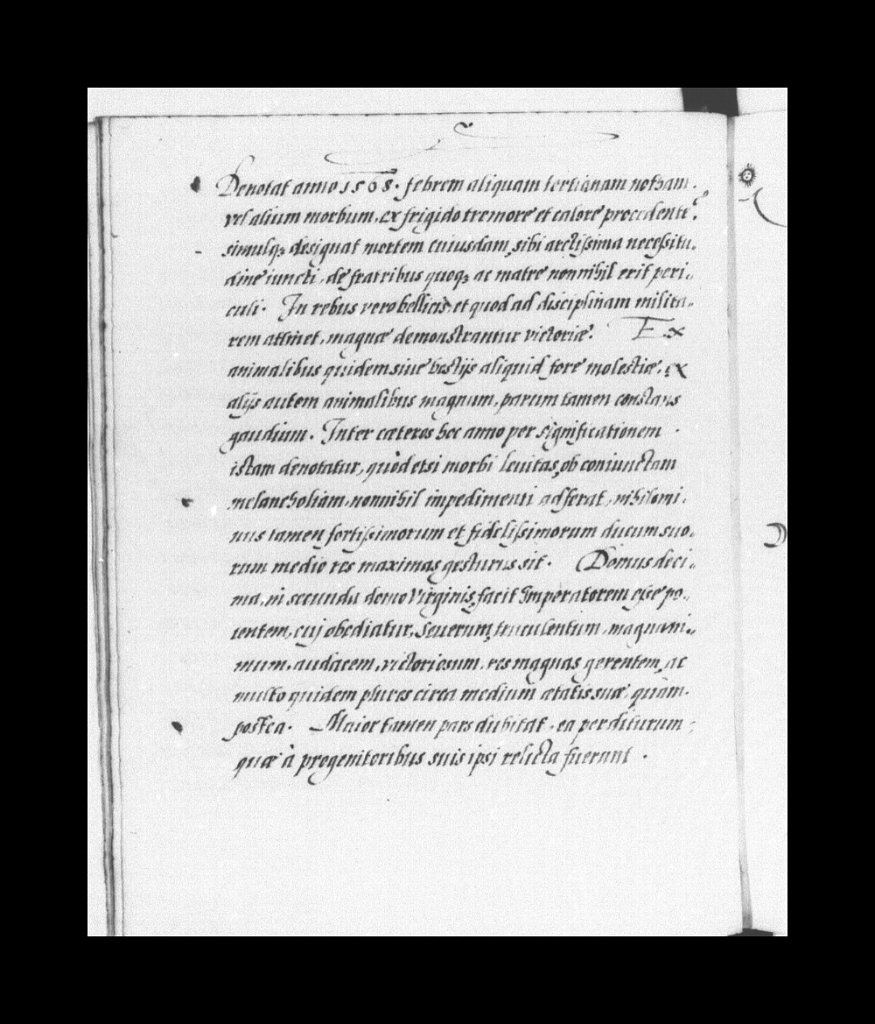 Denotat anno 1568. febrem aliquam tertianam notham.
vel alium morbum, ex frigido tremore et calore procedentē,
simulq; designat mortem cuiusdam, sibi arctissima necessitu,
dine iuncti, de fratribus quoq; ac matre nonnihil erit peri,
culi. In rebus vero bellicis, et quod ad disciplinam milita,
rem attinet, magnæ demonstrantur victoriæ. Ex
animalibus quidem siue bestijs aliquid fore molestiæ, ex
alijs autem animalibus magnum, parum tamen constans
gaudium. Inter cæteros hoc anno per significationem
istam denotatur, quòd etsi morbi leuitas, ob coniunctam
melancholiam, nonnihil impedimenti adferat, nihilomi,
nus tamen fortissimorum et fidelissimorum ducum suo,
rum medio res maximas gesturus sit. Domus deci,
ma, in secunda domo Virginis, facit Imperatorem esse po,
tentem, cuj obediatur, Seuerum, truculentum, magnani,
mum, audacem, victoriosum, res magnas gerentem, ac
multo quidem plures circa medium ætatis suæ, quàm
postea. Maior tamen pars dubitat, ea perditurum
quæ à progenitoribus suis ipsi relicta fuerunt.